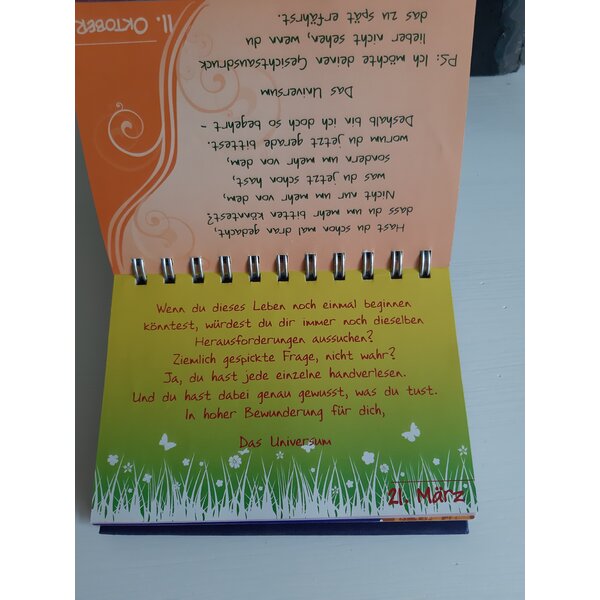 Hast du schon mal dran gedacht,
dass du um mehr bitten könntest?
Nicht nur um mehr von dem,
was du jetzt schon hast,
sondern um mehr von dem,
worum du jetzt gerade bittest.
Deshalb bin ich doch so begehrt –
Das Universum
PS: Ich möchte deinen Gesichtsausdruck
lieber nicht sehen, wenn du
das zu spät erfährst.
11. OKTOBER
Wenn du dieses Leben noch einmal beginnen
könntest, würdest du dir immer noch dieselben
Herausforderungen aussuchen?
Ziemlich gespickte Frage, nicht wahr?
Ja, du hast jede einzelne handverlesen.
Und du hast dabei genau gewusst, was du tust.
In hoher Bewunderung für dich,
Das Universum
21. März